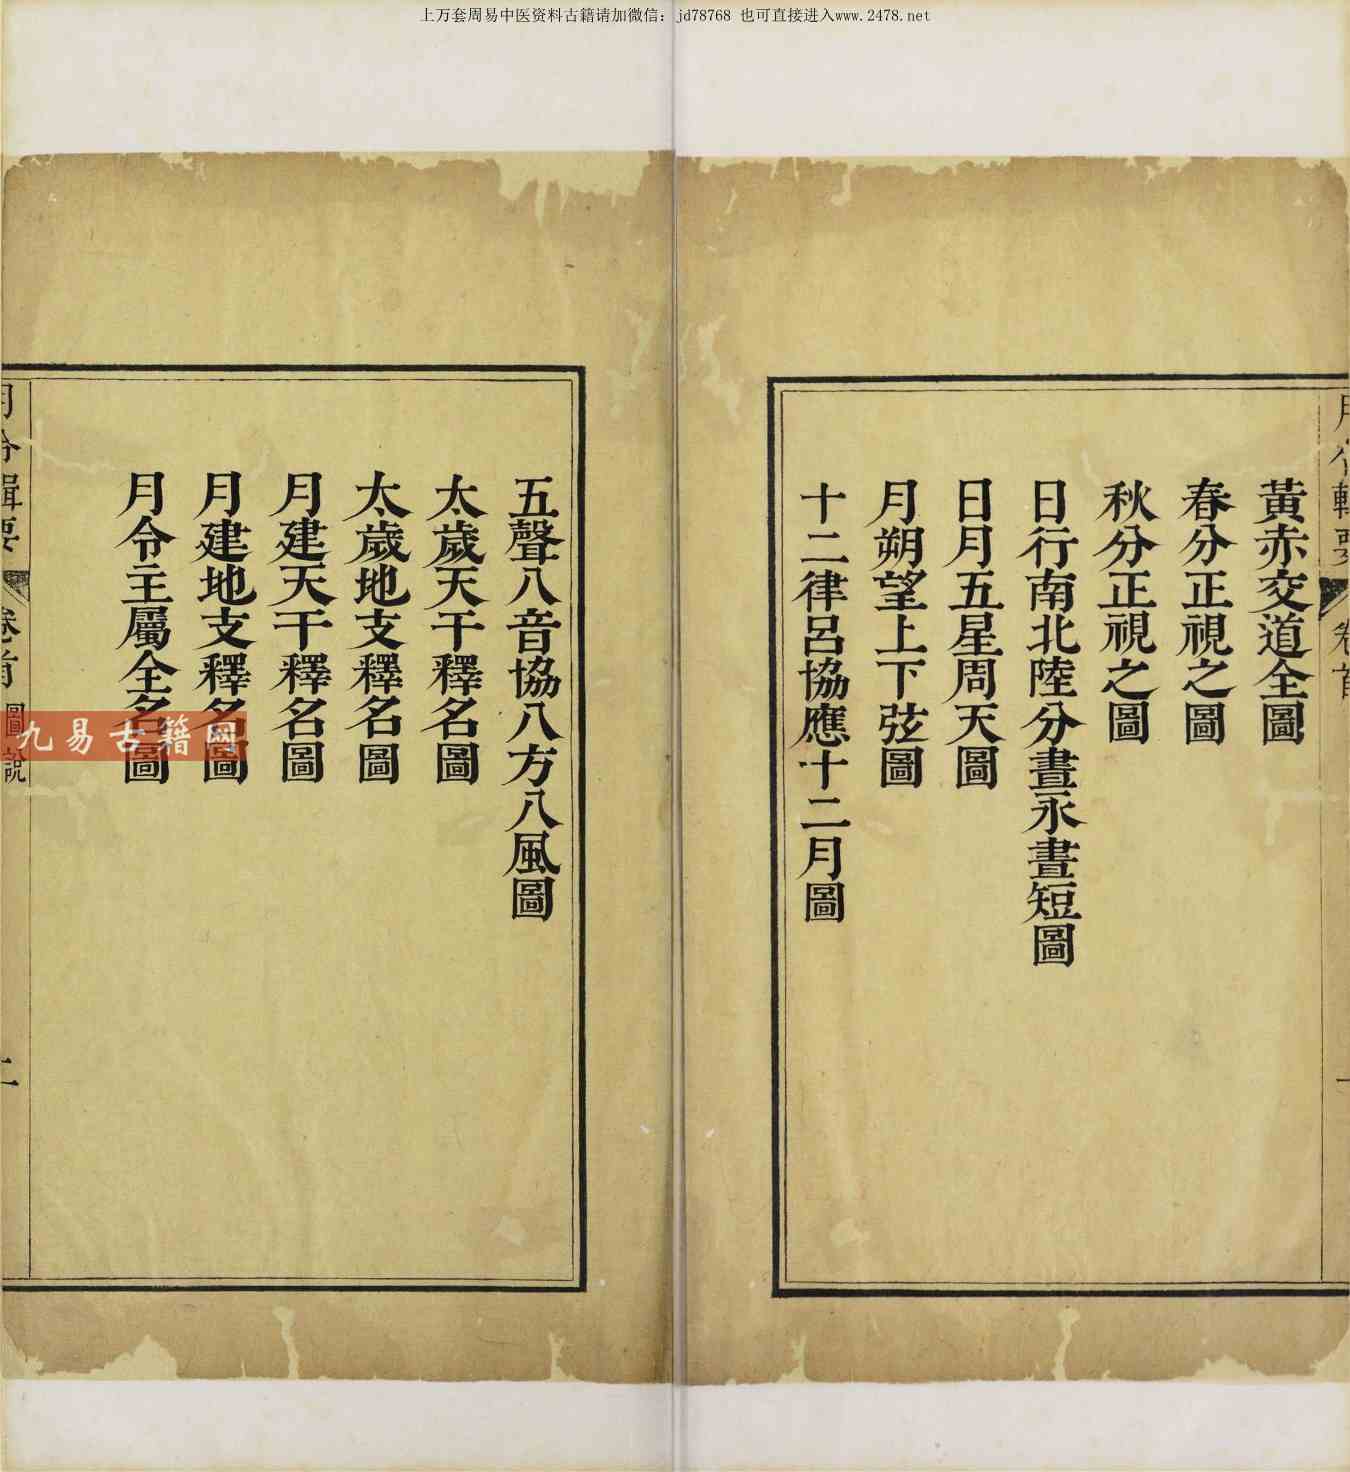 上万套周易中医资料古籍请加微信：jd78768 也可直接进入www.2478.net
黃赤交道全圖
春分正視之圖
秋分正視之圖
日行南北陸分晝永晝短圖
日月五星周天圖
月朔望上下弦圖
十二律呂協應十二月圖
五聲八音協八方八風圖
太歲天干釋名圖
太歲地支釋名圖
月建天干釋名圖
月建地支釋名圖
月令主屬全名圖
月令輯要 卷首 圖說 二
九易古籍网